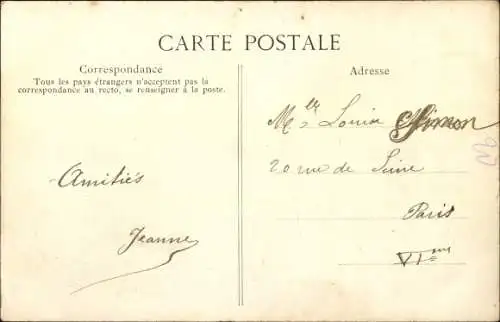 CARTE POSTALE
Correspondance
Tous les pays étrangers n'acceptent pas la
correspondance au recto, se renseigner à la poste.
Amitiés
Jeanne
Adresse
Melle Louise Simon
20 rue de Seine
Paris
VIeme